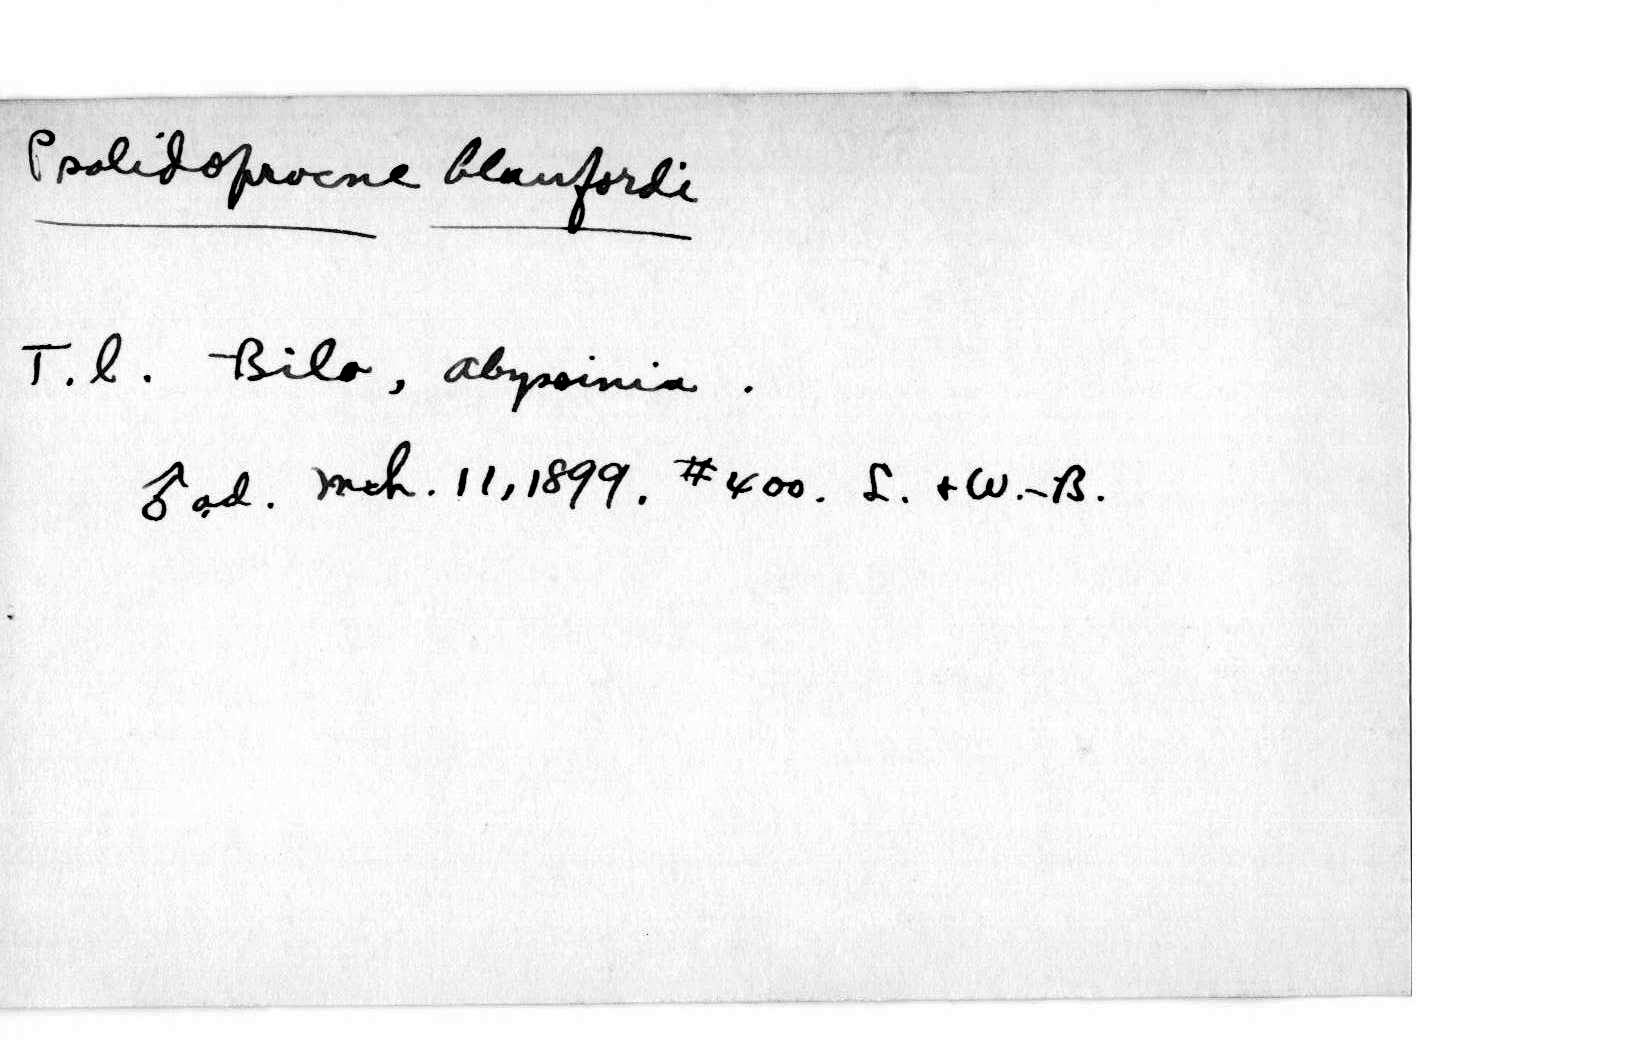 Psalidoprocne blanfordi
T.l. Bilo, Abyssinia.
♂ ad. Mch. 11, 1899. #400. L. + W.-B.